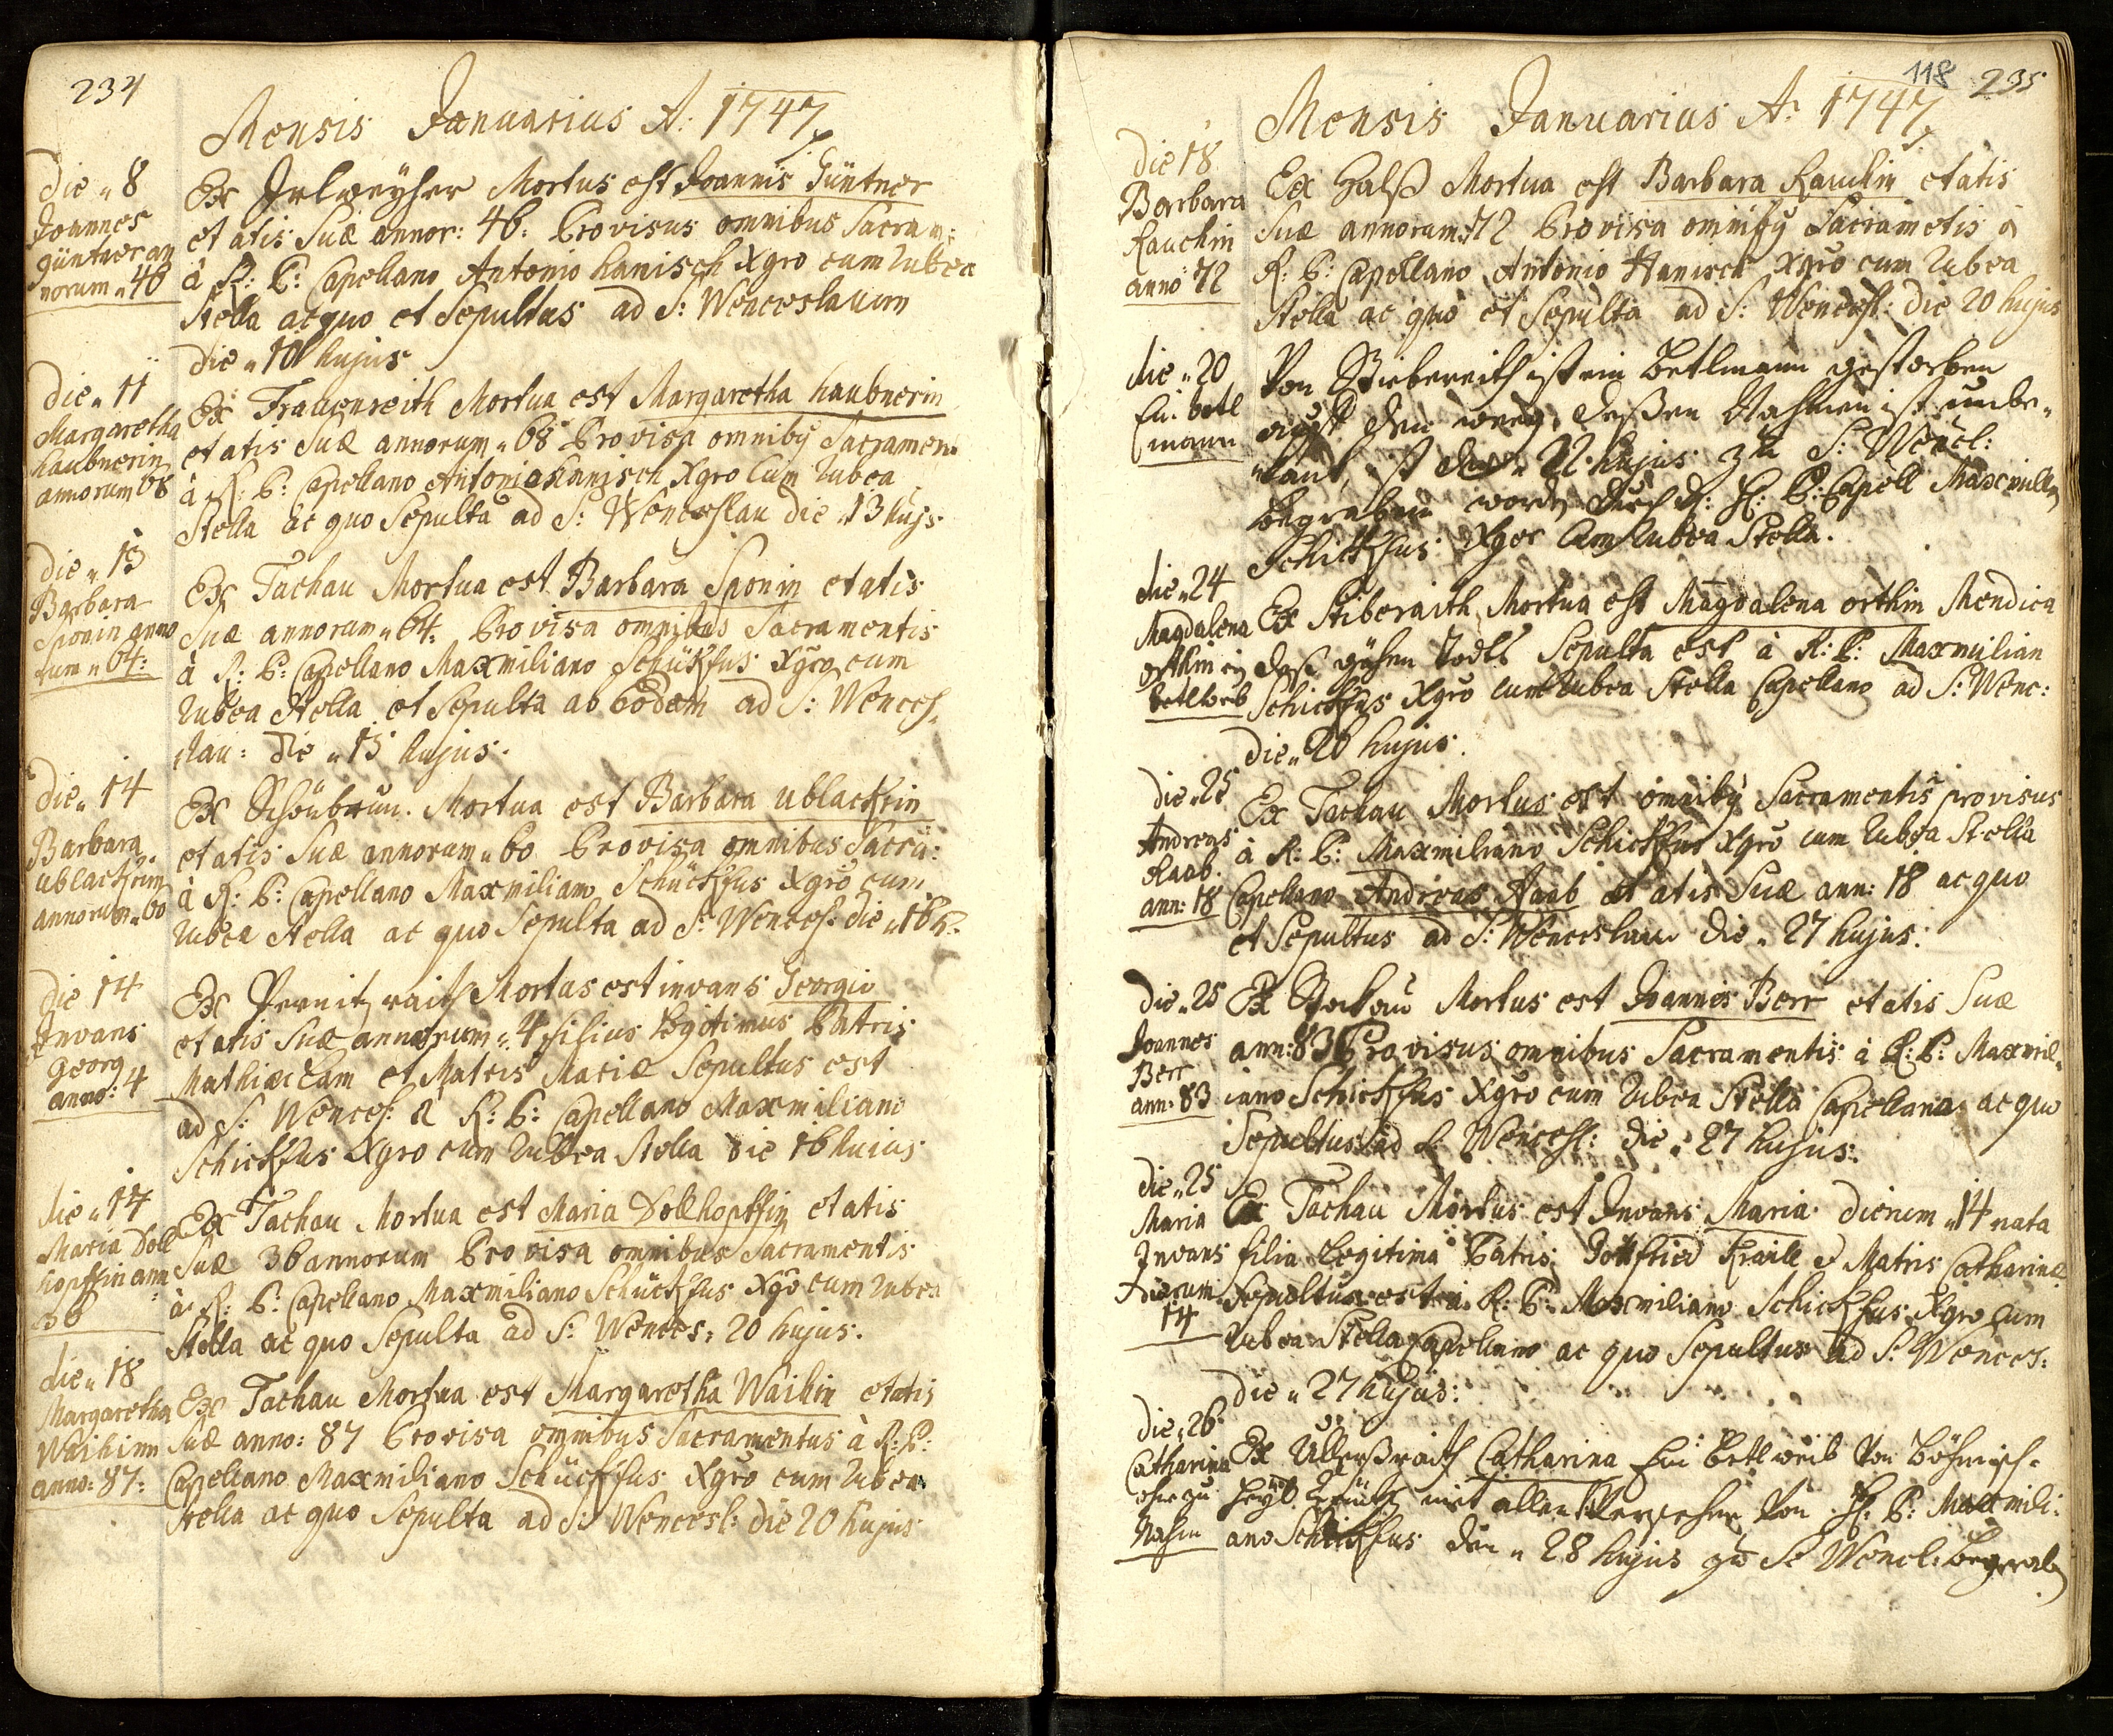 234
Mensis Januarius A: 1747
die „ 8
Joannes
Güntner an
norum „ 46
Ex Inlweyher Mortus est Joannis Güntner
etatis Suæ annor: 46: Provisus omnibus Sacram:
à R: P: Capellano Antonio Hanisch Xgro cum rubea
Stella ac quo et Sepultus ad S: Wenceslaum
die „ 10 hujus
die „ 11
Margaretha
Haubnerin
annorum 68
Ex Frauenreith Mortua est Margaretha Haubnerin
etatis Suæ annorum „ 68 Provisa omniby Sacramen:
à R: P: Capellano Antonio Hanisch Xgro Cum rubea
Stella ac quo Sepulta ad S: Wenceslau die „ 13 hujs
die „ 13
Barbara
Sponin anno
rum „ 64:
Ex Tachau Mortua est Barbara Sponin etatis
Suæ annorum „ 64: Provisa omnibus Sacramentis
à R: P: Capellano Maxmiliano Schückfus Xgro cum
rubea Stella et Sepulta ab Eodem ad S: Wences
slau: die „ 15 hujus.
die „ 14
Barbara
ublackrin
annorum „ 60
Ex Schönbrun. Mortua est Barbara ublackrin
etatis Suæ annorum „ 60 Provisa omnibus Sacra:
à R: P: Capellano Maxmiliano Schückfus Xgro cum
rubea Stella ac quo Sepulta ad S: Wences: die „ 16 h:
die 14
Invans
Georg
anno: 4
Ex Pernitzraith Mortus est invans Georgio
etatis Suæ annorum „ 4 filius Legitimus Patris
Mathiæ Lam et Matris Mariæ Sepultus est
ad S: Wences: à R: P: Capellano Maxmiliano
Schickfus Xgro cum rubea Stella die 16 huius
die „ 14
Maria Doll
hopffin ann
36
Ex Tachau Mortua est Maria Dollhopffin etatis
Suæ 36 annorum Provisa omnibus Sacramentis
à R: P: Capellano Maxmiliano Schückfus Xgro cum rubea
Stella ac quo Sepulta ad S: Wences: 20 hujus.
die „ 18
Margaretha
Waihinn
anno: 87:
Ex Tachau Mortua est Margaretha Waihin etatis
Suæ anno: 87 Provisa omnibus Sacramentus à R: P:
Capellano Maxmiliano Schückfus Xgro cum rubea
Stella ac quo Sepulta ad S: Wencesl: die 20 hujus
118 235
Mensis Januarius A: 1747
die 18
Barbara
Rauchin
anno 72
Ex Halß Mortua est Barbara Rauchin etatis
Suæ annorum 72 Provisa omniby Sacrametis à
R: P: Capellano Antonio Hanisch Xgro cum rubea
Stella ac quo et Sepulta ad S: Wencesl: die 20 hujus
die „ 20
Ein betl
mann
Von Stiebereith ist ein betlmann gestorben
auff den weeg, deßen Nahmen ist unbe„
kant, ist den 22 hujus zu S: Wencl:
begraben worden durch H: P: Capell Maxmillia
Schickfus Xger Cum rubea Stella.
die „ 24
Magdalena
orthin ein
betlweib
Ex Stiberaith Mortua est Magdalena orthin Mendica
deß gähen todts Sepulta est à R: P: Maxmilian
Schickfus Xgro cum rubea Stella Capellano ad S: Wenc:
die „ 26 hujus.
die „ 25
Andreas
Raab.
ann: 18
Ex Tachau Mortus est omniby Sacramentis provisus
à R: P: Maxmiliano Schickfus Xgro cum rubea Stella
Capellano Andreas Raab etatis Suæ ann: 18 ac quo
et Sepultus ad S: Wenceslau die „ 27 hujus.
die „ 25
Joannes
Berr
ann: 83
Ex Mortus est Joannes Berr etatis Suæ
ann: 83 Provisus omnibus Sacramentis à R: P: Maxmil„
iano Schickfus Xgro cum rubea Stella Capellano ac quo
Sepultus ad S: Wencesl: die „ 27 hujus.
die „ 25
Maria
Invans
dierum
14
Ex Tachau Mortus est Invans Maria dierum „ 14 nata
filia Legitima Patris Gottfried Kraill et Matris Catharinæ
Sepultus est à R: P: Maxmiliano Schickfus Xgro cum
rubea Stella Capellano ac quo Sepultus ad S: Wences:
die „ 27 hujus:
die „ 26
Catharina
ohne zu
Nahm
Ex Ullerßraith Catharina Ein betlweib Von Böhmisch-
mit allen Versehen Von H: P: Maxmili:
ano Schickfus den „ 28 hujus zu S: Wencl: begraben